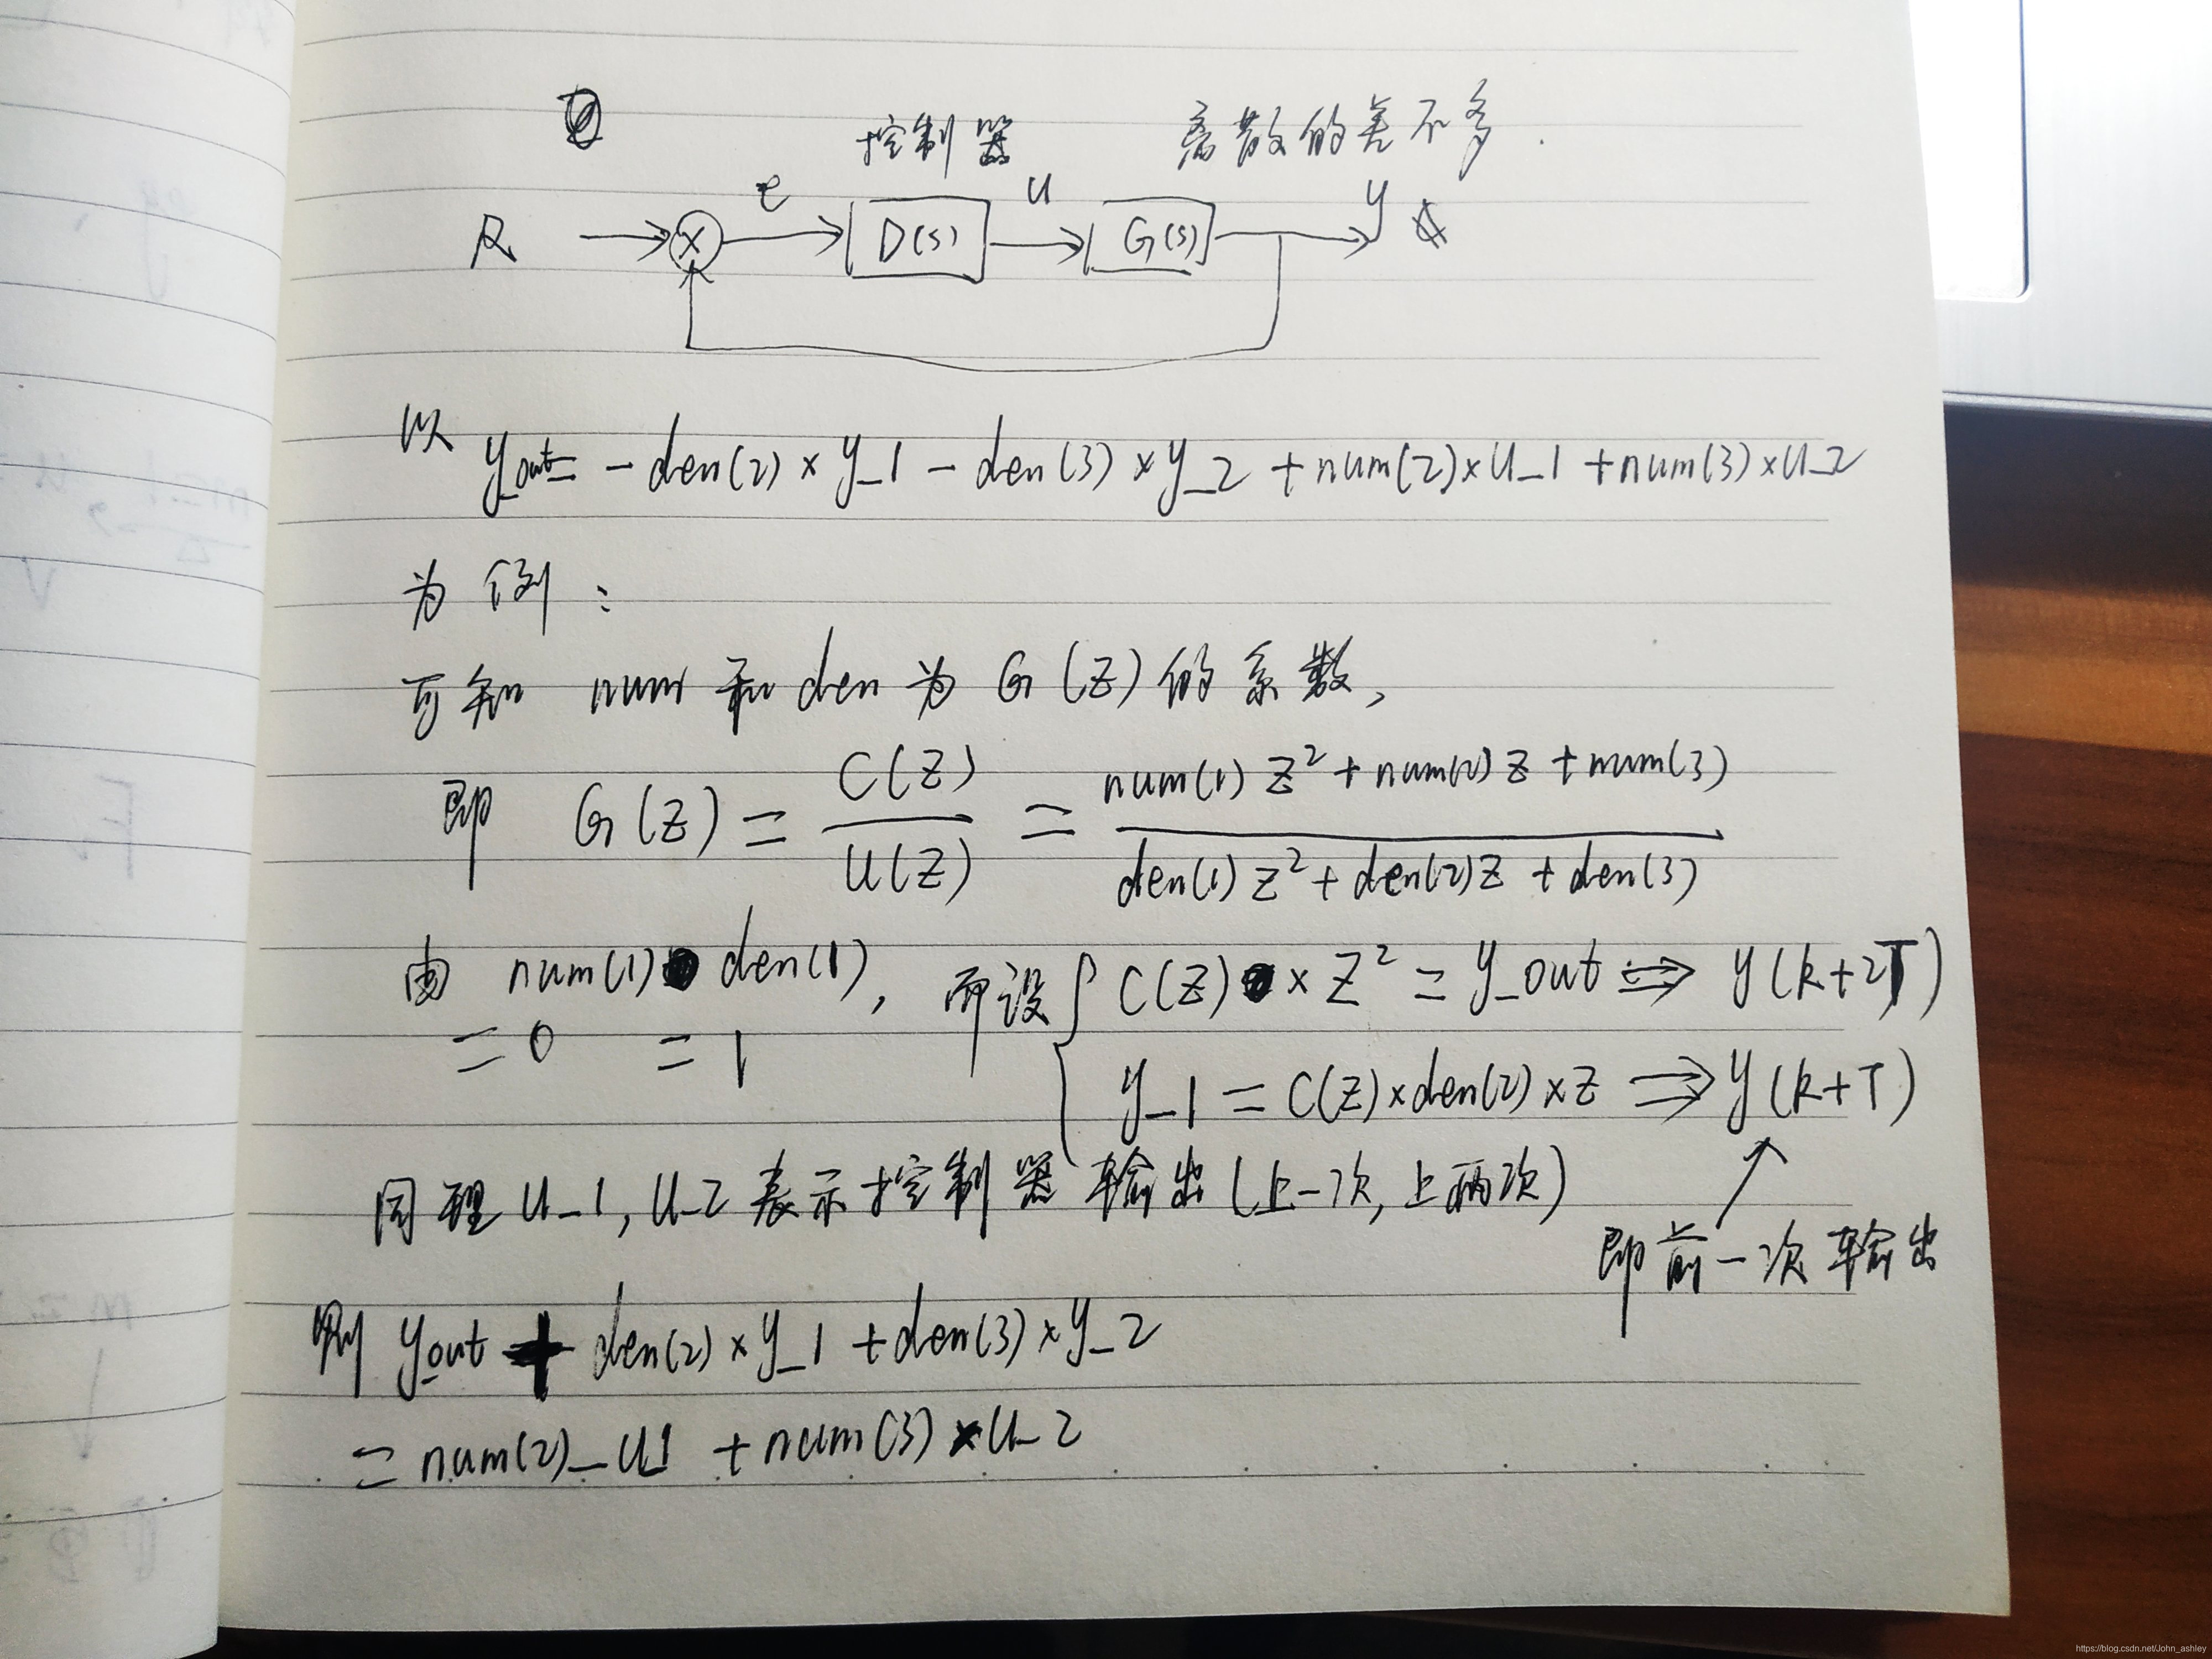 控制器 离散的差不多.
R e D(s) u G(s) y
以 y_out = -den(2)×y_1 - den(3)×y_2 + num(2)×u_1 + num(3)×u_2
为例:
可知 num 和 den 为 G(z) 的系数,
即 G(z) = C(z)/U(z) = (num(1)z²+num(2)z+num(3))/(den(1)z²+den(2)z+den(3))
由 num(1) den(1), 而设 { C(z)×z² = y_out ⇒ y(k+2T)
=0 =1
y_1 = C(z)×den(2)×z ⇒ y(k+T)
同理 u_1, u_2 表示控制器输出(上一次,上两次)
即前一次输出
则 y_out + den(2)×y_1 + den(3)×y_2
= num(2)_u1 + num(3)×u_2
https://blog.csdn.net/John_ashley